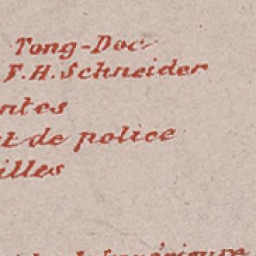 Tong-Doc
F.H. Schneider
ntes
t de police
illes